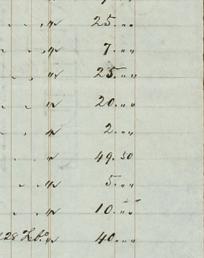 " 25.""
" 7.""
" 25.""
" 20.""
" 2.""
" 49.50
" 5.""
" 10.""
128 Lbs " 40.""